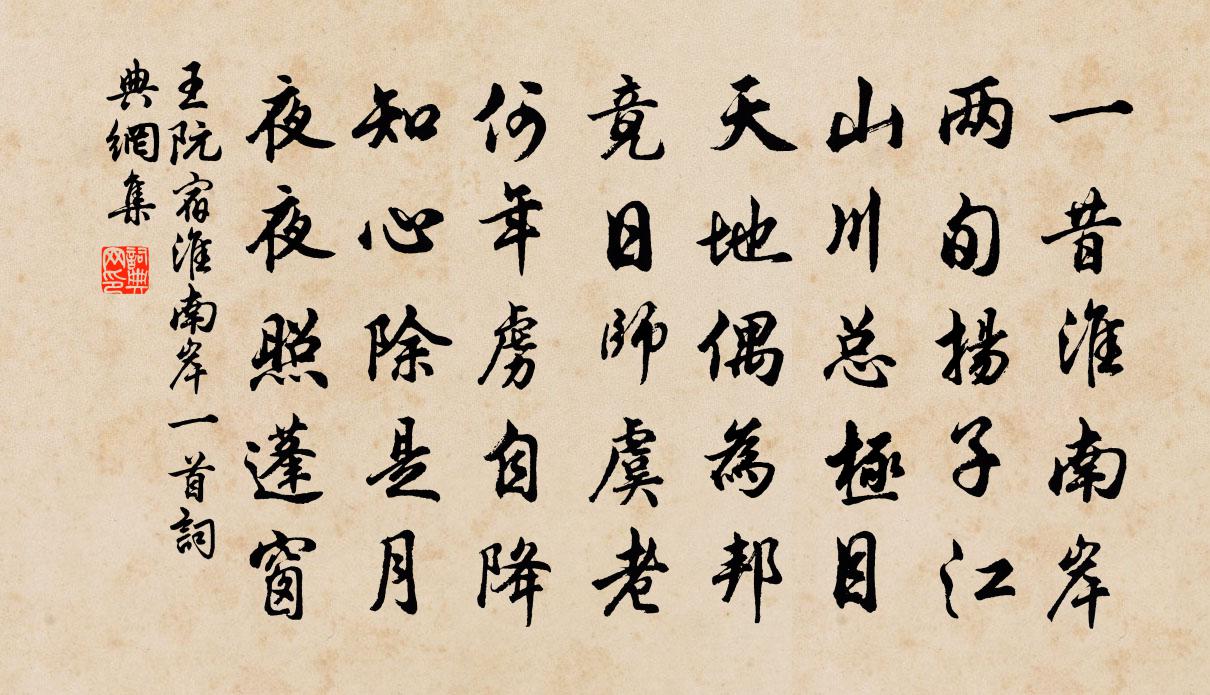 一昔淮南岸
两旬揚子江
山川总極目
天地偶為邦
竟日師虞老
何年虜自降
知心除是月
夜夜照蓬窗
王阮宿淮南岸一首詞
典網集
詞典网印